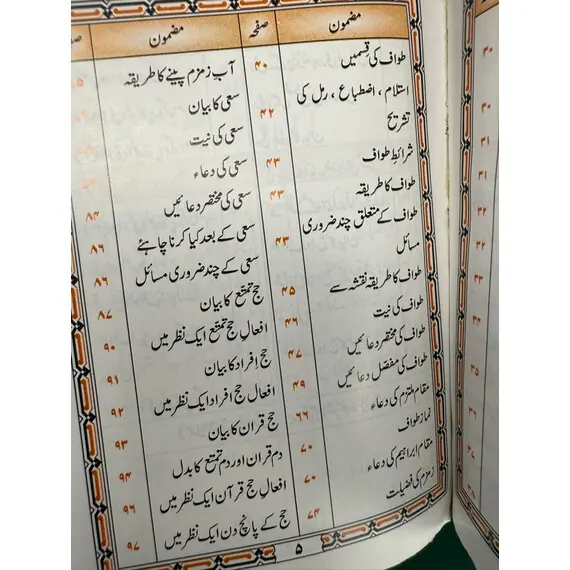 مضمون صفحہ
طواف کی قسمیں ۴۰
استلام ، اضطباع ، رمل کی
تشریح ۴۲
شرائطِ طواف ۴۳
طواف کا طریقہ ۴۳
طواف کے متعلق چند ضروری
مسائل ۴۳
طواف کا طریقہ نقشہ سے ۴۵
طواف کی نیت ۴۶
طواف کی مختصر دعائیں ۴۷
طواف کی مفصل دعائیں ۴۹
مقام ملتزم کی دعاء ۶۶
نماز طواف ۷۰
مقام ابراہیم کی دعاء ۷۰
زمزم کی فضیلت ۷۴
مضمون
آبِ زمزم پینے کا طریقہ
سعی کا بیان
سعی کی نیت
سعی کی دعاء
سعی کی مختصر دعائیں ۸۴
سعی کے بعد کیا کرنا چاہئے ۸۶
سعی کے چند ضروری مسائل ۸۶
حج تمتع کا بیان ۸۷
افعالِ حج تمتع ایک نظر میں ۹۰
حج افراد کا بیان ۹۱
افعالِ حج افراد ایک نظر میں ۹۲
حج قران کا بیان ۹۳
دم قران اور دم تمتع کا بدل ۹۴
افعالِ حج قرآن ایک نظر میں ۹۶
حج کے پانچ دن ایک نظر میں ۹۷
۵
۳۰
۳۰
۳۱
۳۱
۳۲
۳۲
۳۳
۳۴
۳۵